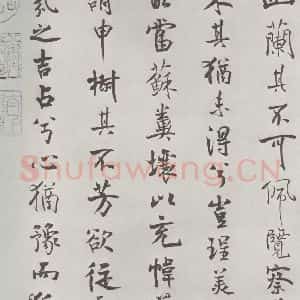 幽蘭其不可佩覽察
木其猶未得兮豈珵美
當蘇糞壤以充幃
謂申椒其不芳欲從
氛之吉占兮心猶豫而
Shufawang.CN